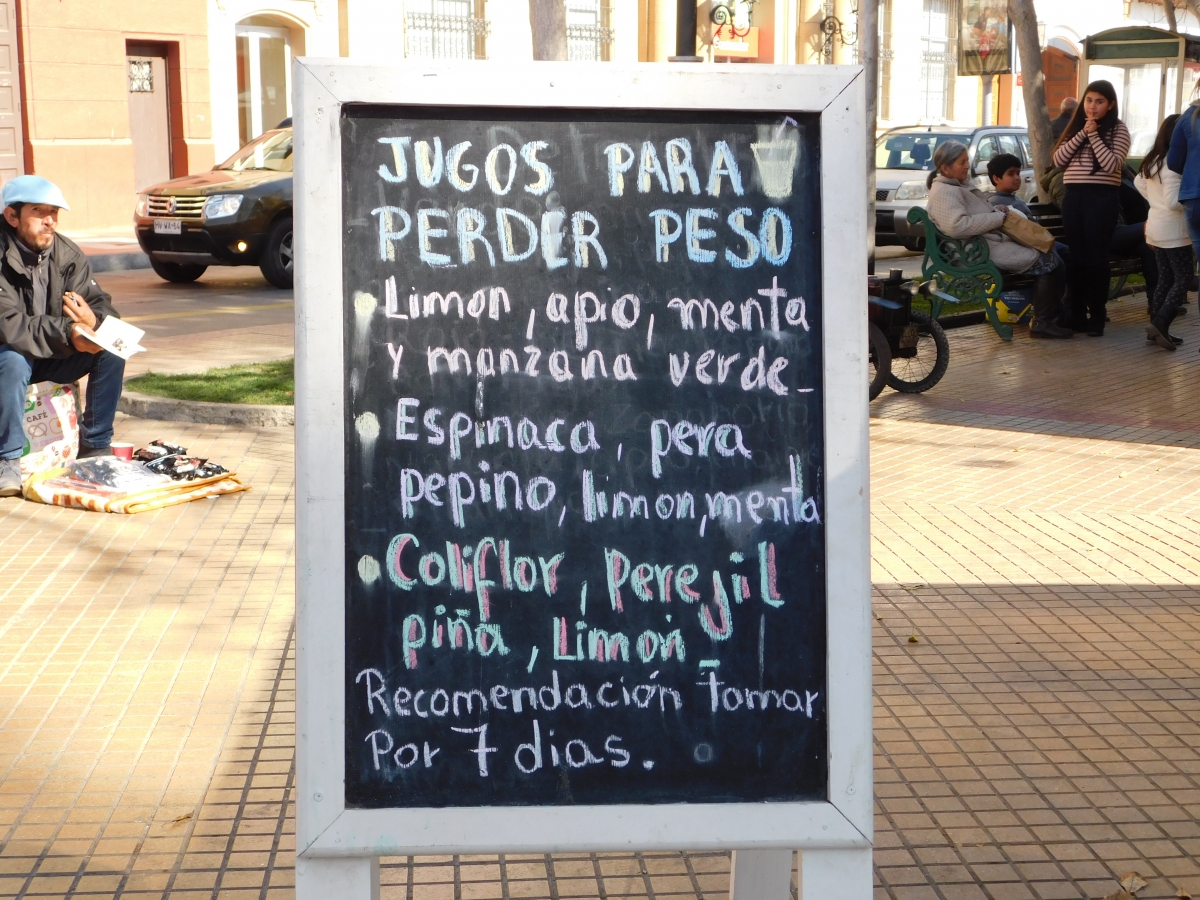 JUGOS PARA
PERDER PESO
Limon, apio, menta
y manzana verde_
Espinaca, pera
pepino, limon, menta
Coliflor, perejil
piña, Limon_
Recomendación Tomar
Por 7 dias.
CAFÉ